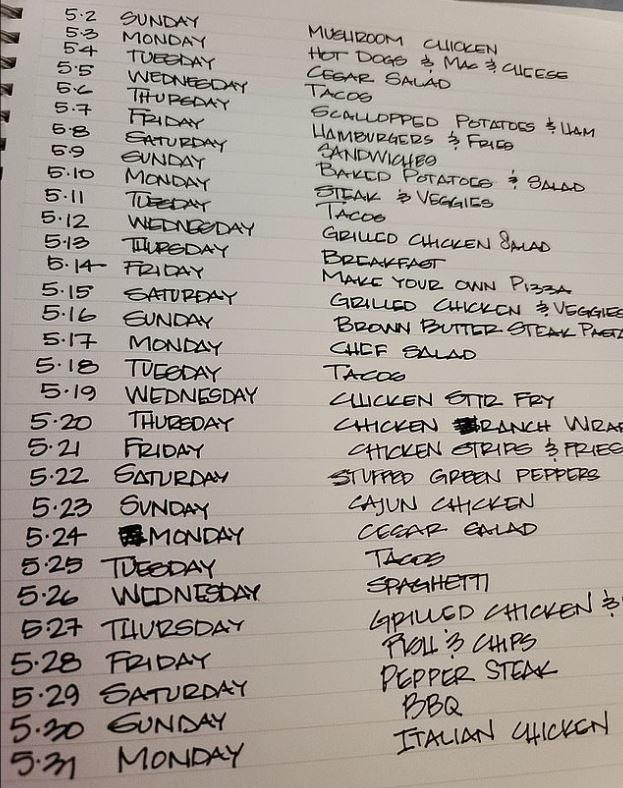 5.2 SUNDAY MUSHROOM CHICKEN
5.3 MONDAY HOT DOGS & MAC & CHEESE
5.4 TUESDAY CESAR SALAD
5.5 WEDNESDAY TACOS
5.6 THURSDAY SCALLOPPED POTATOES & HAM
5.7 FRIDAY HAMBURGERS & FRIES
5.8 SATURDAY SANDWICHES
5.9 SUNDAY BAKED POTATOES & SALAD
5.10 MONDAY STEAK & VEGGIES
5.11 TUESDAY TACOS
5.12 WEDNESDAY GRILLED CHICKEN SALAD
5.13 THURSDAY BREAKFAST
5.14 FRIDAY MAKE YOUR OWN PIZZA
5.15 SATURDAY GRILLED CHICKEN & VEGGIES
5.16 SUNDAY BROWN BUTTER STEAK PASTA
5.17 MONDAY CHEF SALAD
5.18 TUESDAY TACOS
5.19 WEDNESDAY CHICKEN STIR FRY
5.20 THURSDAY CHICKEN RANCH WRAP
5.21 FRIDAY CHICKEN STRIPS & FRIES
5.22 SATURDAY STUFFED GREEN PEPPERS
5.23 SUNDAY CAJUN CHICKEN
5.24 MONDAY CESAR SALAD
5.25 TUESDAY TACOS
5.26 WEDNESDAY SPAGHETTI
5.27 THURSDAY GRILLED CHICKEN &
5.28 FRIDAY FISH & CHIPS
5.29 SATURDAY PEPPER STEAK
5.30 SUNDAY BBQ
5.31 MONDAY ITALIAN CHICKEN